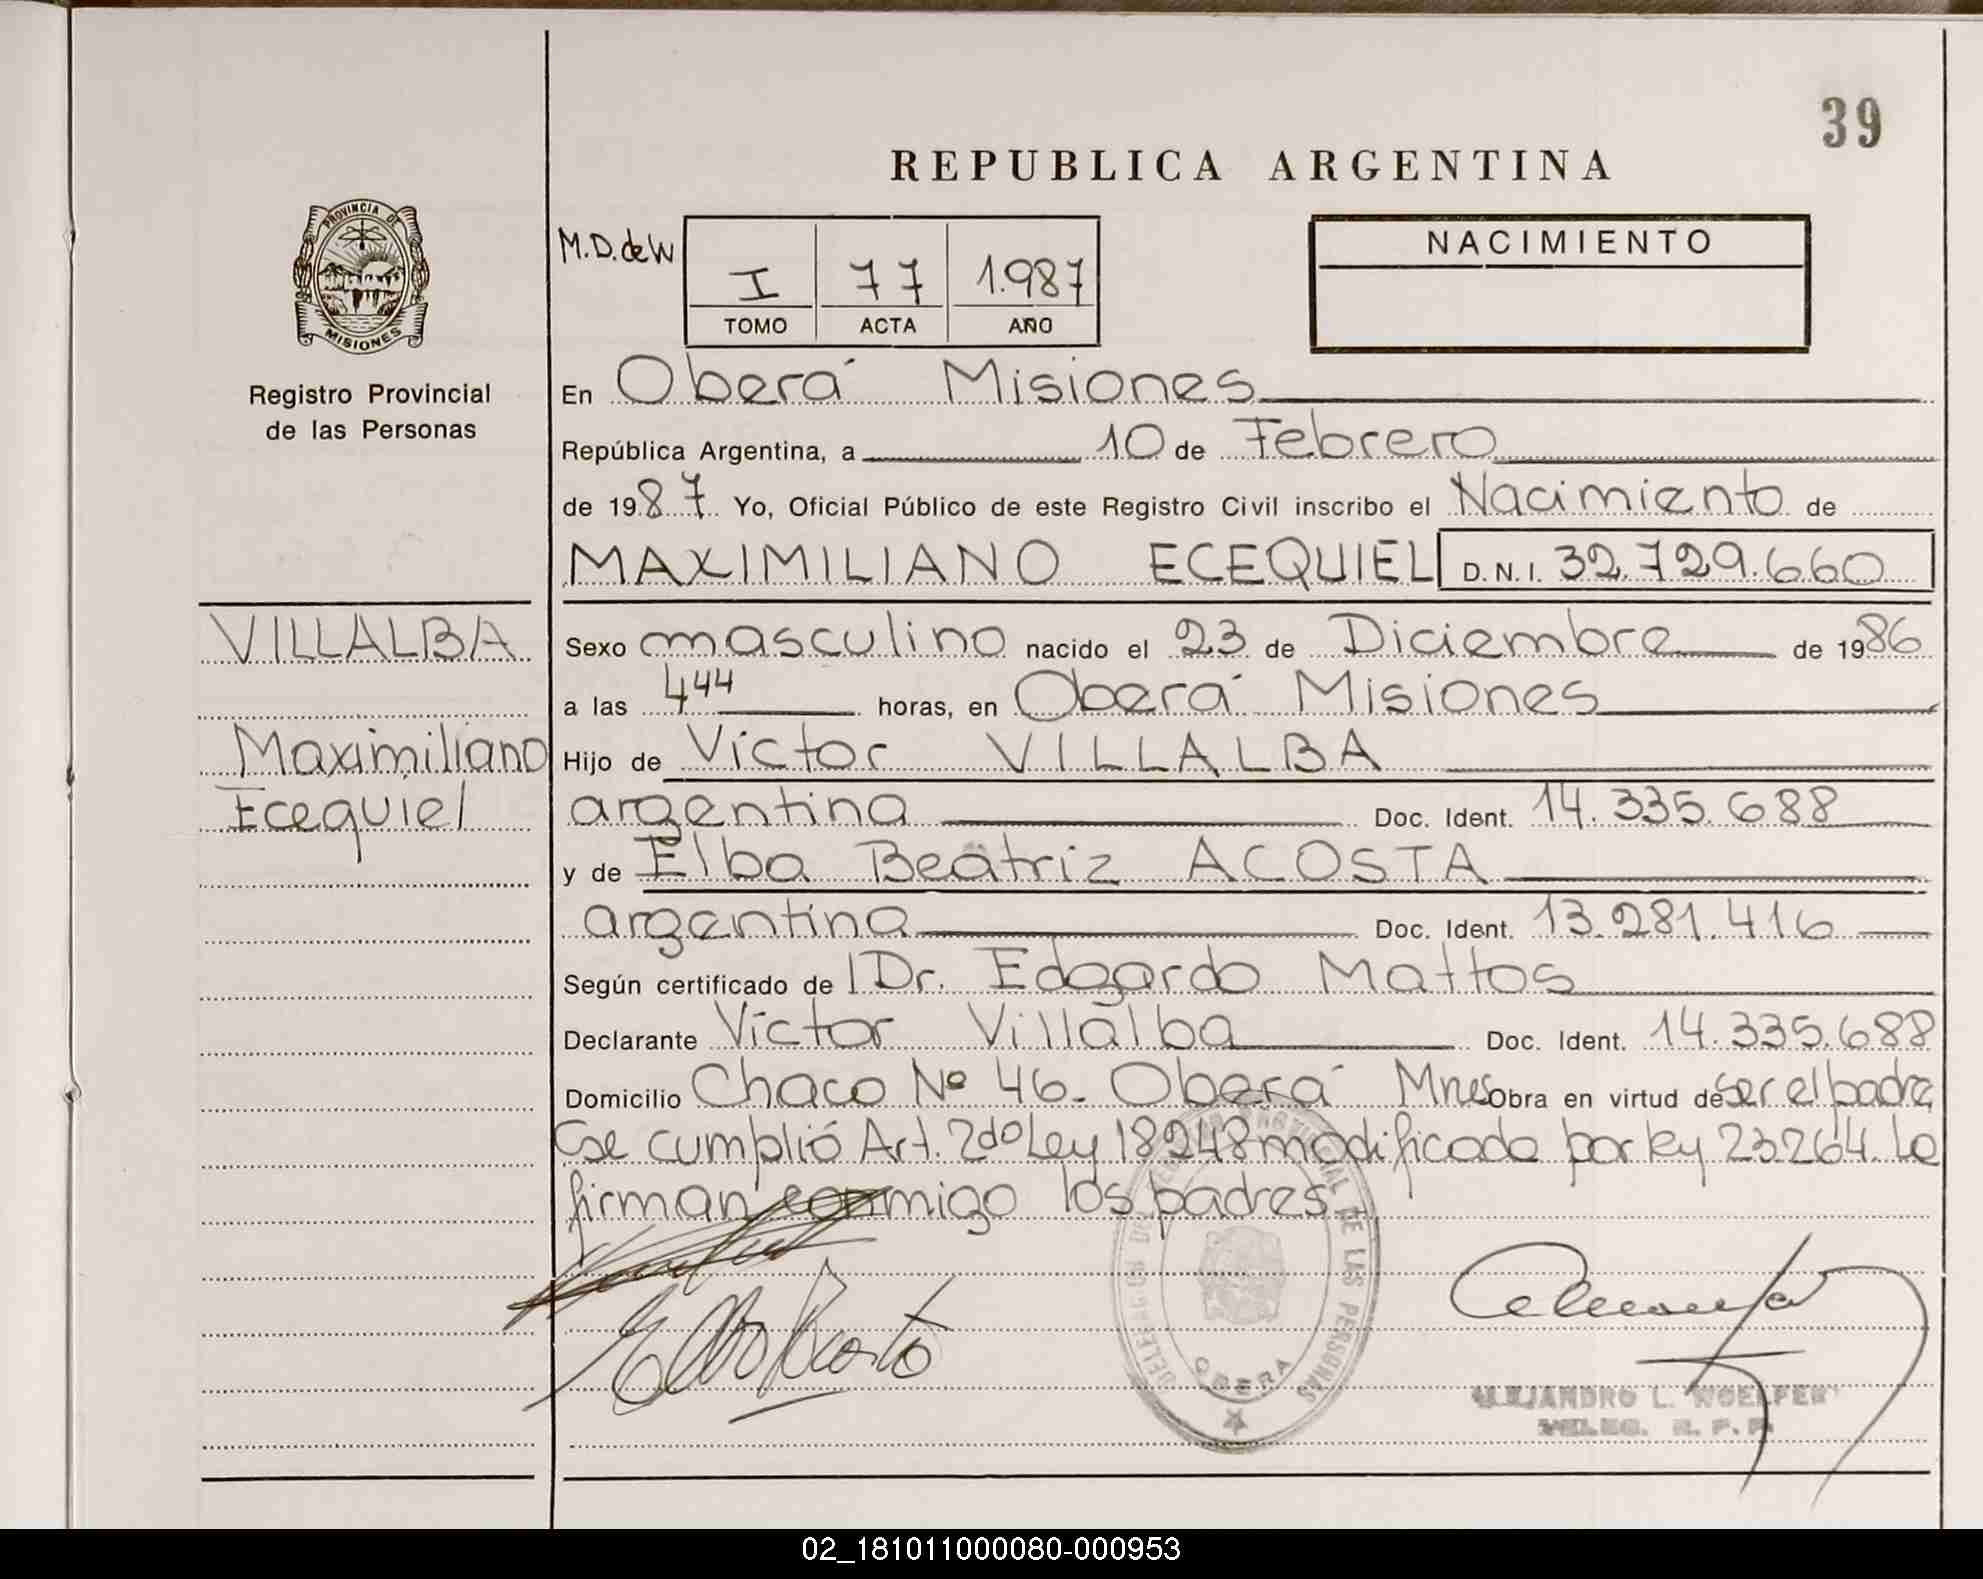 39
REPUBLICA ARGENTINA
PROVINCIA DE
MISIONES
Registro Provincial
de las Personas
M.D. de W
I 77 1.987
TOMO ACTA AÑO
NACIMIENTO
En Oberá Misiones
República Argentina, a 10 de Febrero
de 1987 Yo, Oficial Público de este Registro Civil inscribo el Nacimiento de
MAXIMILIANO ECEQUIEL D.N.I. 32.729.660
VILLALBA
Maximiliano
Ecequiel
Sexo masculino nacido el 23 de Diciembre de 1986
a las 444 horas, en Oberá Misiones
Hijo de Víctor VILLALBA
argentino Doc. Ident. 14.335.688
y de Elba Beatriz ACOSTA
argentina Doc. Ident. 13.281.416
Según certificado de l Dr. Edgardo Mattos
Declarante Víctor Villalba Doc. Ident. 14.335.688
Domicilio Chaco Nº 46. Oberá Mnes Obra en virtud de ser el padre
se cumplió Art. 2do Ley 18248 modificado por ley 23264. Le
firman conmigo los padres
DELEGACION DEL REGISTRO PROVINCIAL DE LAS PERSONAS
OBERA
ALEJANDRO L. WOELFER
DELEG. R. P. P.
02_181011000080-000953